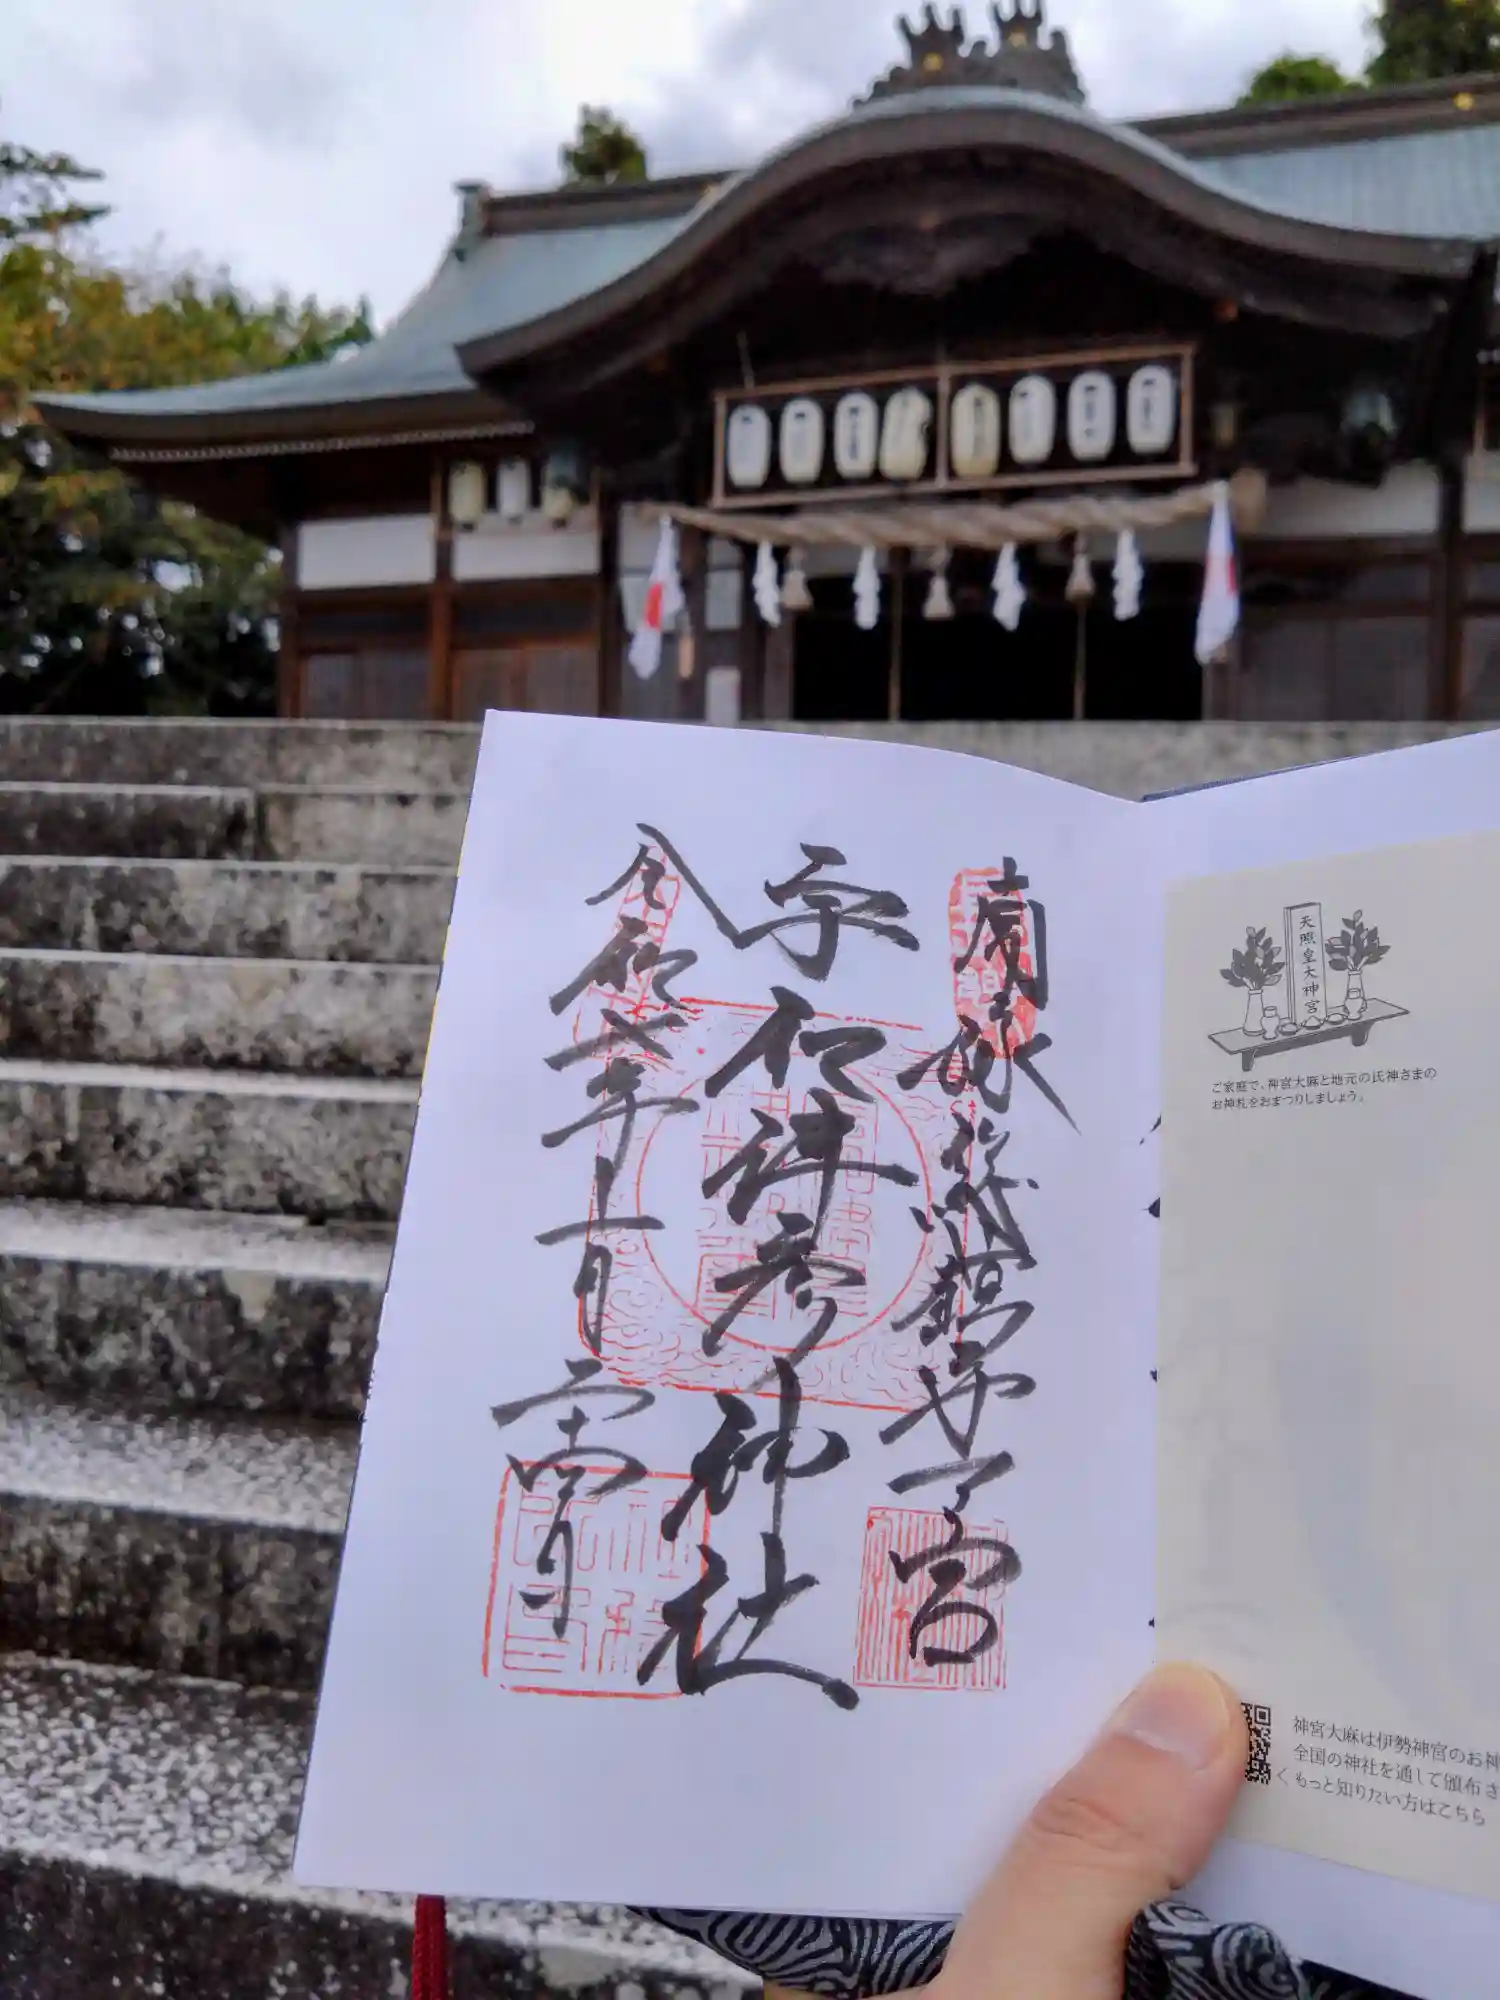 南豫総鎮守一宮
宇和津彦神社
令和七年
天照皇大神宮
ご家庭で、神宮大麻と地元の氏神さまの
お神札をおまつりしましょう。
神宮大麻は伊勢神宮のお神
全国の神社を通して頒布さ
くもっと知りたい方はこちら